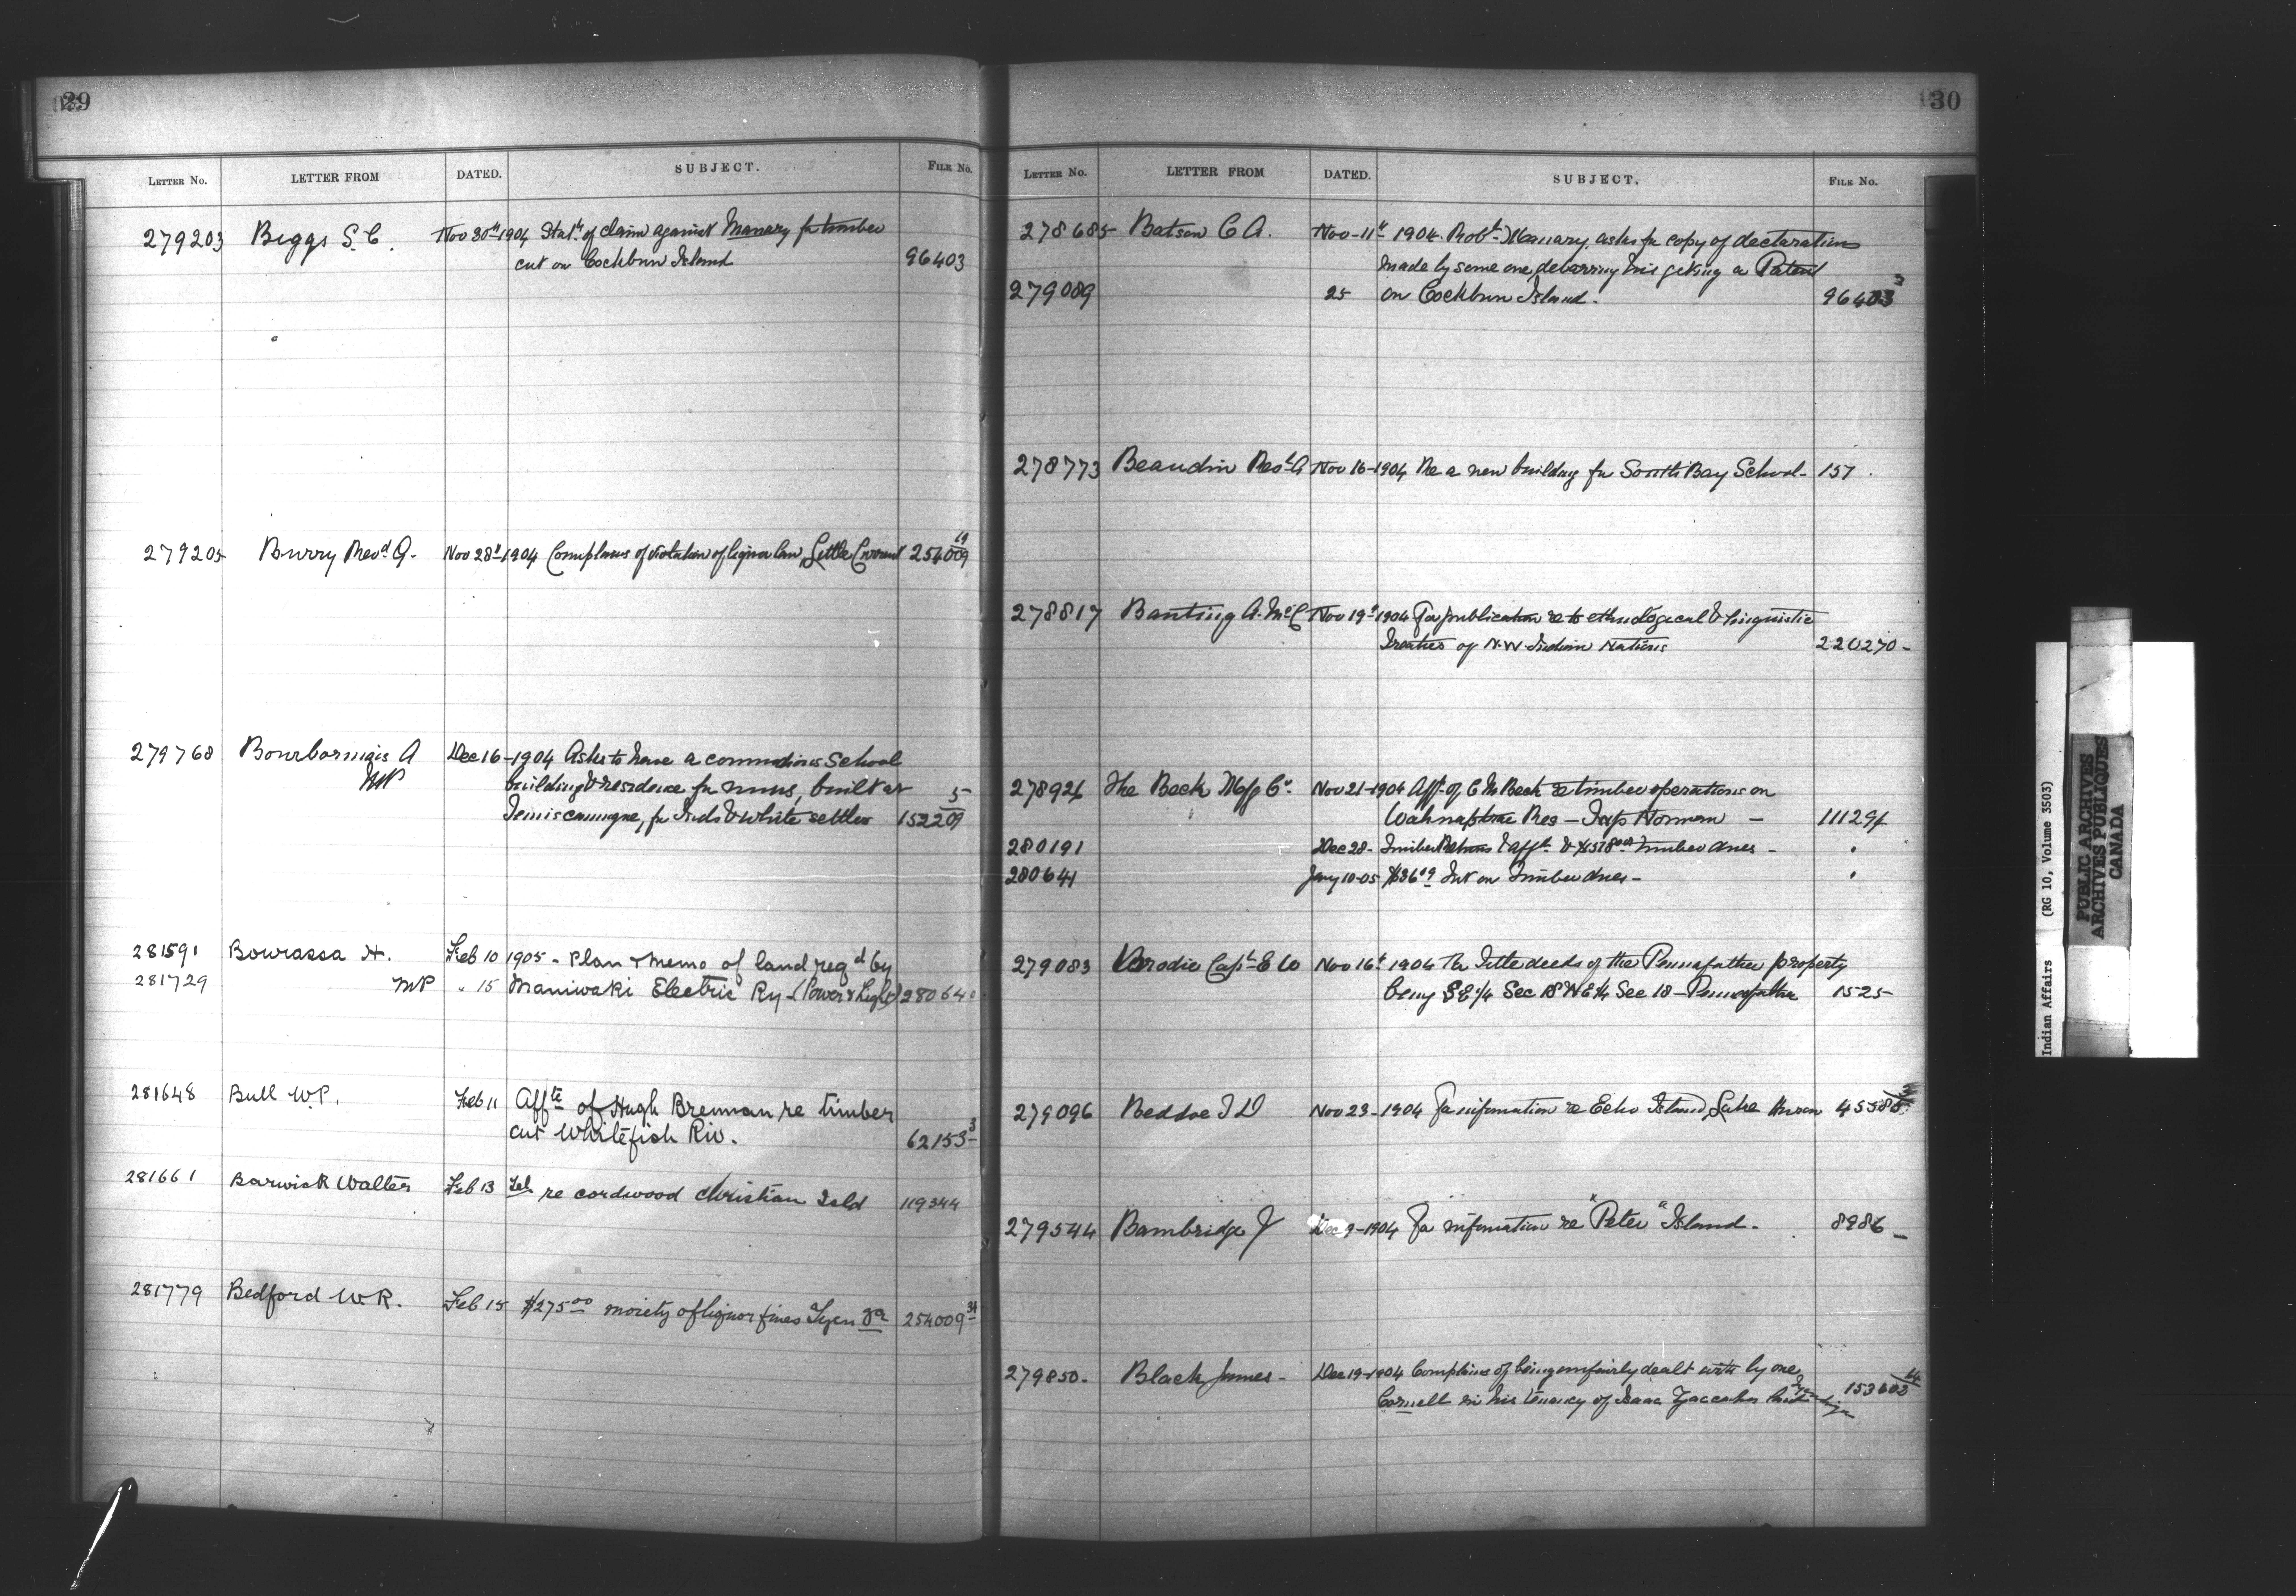 29
LETTER No. LETTER FROM DATED. SUBJECT. FILE No.
279203 Biggs S. C. Nov 30th 1904 Stat. of claim against Manary for timber
cut on Cockburn Island 96403
279205 Burry Revd. A. Nov 28th 1904 Complains of violation of liquor law, Little Current 254009 19
279768 Bourbonnais A Dec 16-1904 Asks to have a commodious School
MP building & residence for nuns, built at 5
Temiscamingue, for Inds & white settlers 152209
281591 Bourassa H. Feb 10 1905 - Plan & memo of land reqd by
281729 MP " 15 Maniwaki Electric Ry - (Power & Light) 28064
281648 Bull W.P. Feb 11 Affte of Hugh Brennan re timber
cut Whitefish Riv. 62153 3
281661 Barwick Walter Feb 13 Tel re cordwood Christian Isld 119344
281779 Bedford W.R. Feb 15 $275 00 moiety of liquor fines 254009 34
30
LETTER No. LETTER FROM DATED. SUBJECT. FILE No.
278685 Batson C A. Nov-11th 1904. Robt. Manary, asks for copy of declaration
made by some one, debarring his getting a Patent
279089 25 on Cockburn Island. 96403 3
278773 Beaudin Nov 16-1904 Re a new building for South Bay School - 157.
278817 Banting A. McC Nov 19th 1904 For publication re to ethnological & linguistic
Treaties of N-W- Indian Nations 220270-
278921 The Beck Mfg Co. Nov 21-1904 Afft. of C M Beck re timber operations on
Wahnapitae Res - Twp Norman - 11129
280191 Dec 28- Timber Returns & afft. & timber dues - "
280641 Jany 10-05 $36 Int on Timber dues - "
279083 Brodie Capt. E W Nov 16th 1904 Title deeds of the Pennefather property
being S E 1/4 Sec 18 N E 1/4 Sec 18 - Pennefather 1525-
279096 Beddoe I D Nov 23-1904 For information re Echo Island, Lake Huron 45585
279544 Bambridge J Dec 9-1904 For information re "Peter" Island. 8986 -
279850. Black James - Dec 19-1904 Complains of being unfairly dealt with by one
Cornell in his tenancy of Isaac 153603 14
Indian Affairs (RG 10, Volume 3503)
PUBLIC ARCHIVES
ARCHIVES PUBLIQUES
CANADA